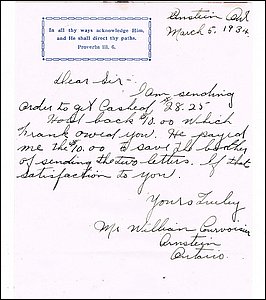 In all thy ways acknowledge Him,
and He shall direct thy paths.
Proverbs iii. 6.
Arnstein Ont
March 5, 1934
Dear Sir -
I am sending
order to get Cashed $28.25
Hold back $10.00 which
Frank owed you. He payed
me the $10.00 to save the bother
of sending the two letters. If that
satisfaction to you.
Yours Truley
Mr William
Arnstein
Ontario.